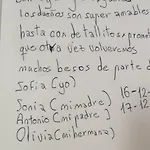 los dueños son super amables
hasta con detallitos, pront
que otra vez volveremos
muchos besos de parte d
Sofia (yo)
Sonia (mi madre) 16-12-
Antonio (mi padre) 17-12-
Olivia (mi hermana)